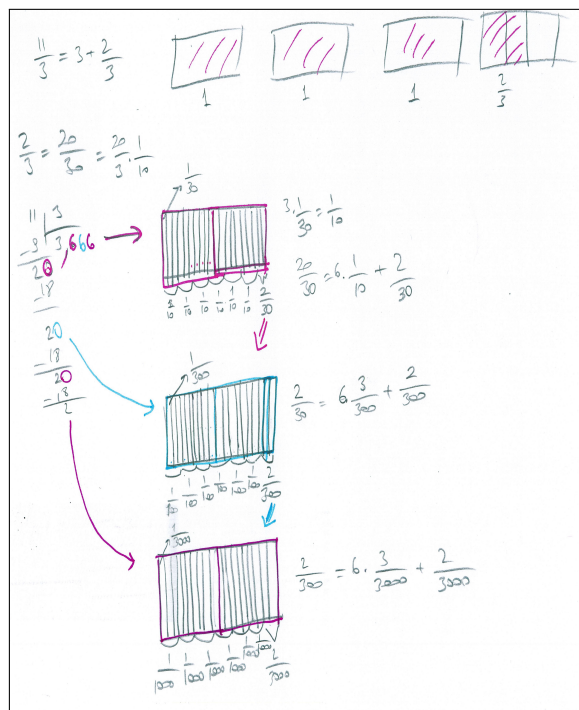 11/3 = 3 + 2/3
1 1 1 2/3
2/3 = 20/30 = 20/3 · 1/10
11 | 3
-9 3,666
20
-18
20
-18
20
-18
2
1/30
3 · 1/30 = 1/10
20/30 = 6 · 1/10 + 2/30
1/10 1/10 1/10 1/10 1/10 1/10 2/30
1/300
2/30 = 6 · 3/300 + 2/300
1/100 1/100 1/100 1/100 1/100 1/100 2/300
1/3000
2/300 = 6 · 3/3000 + 2/3000
1/1000 1/1000 1/1000 1/1000 1/1000 1/1000 2/3000